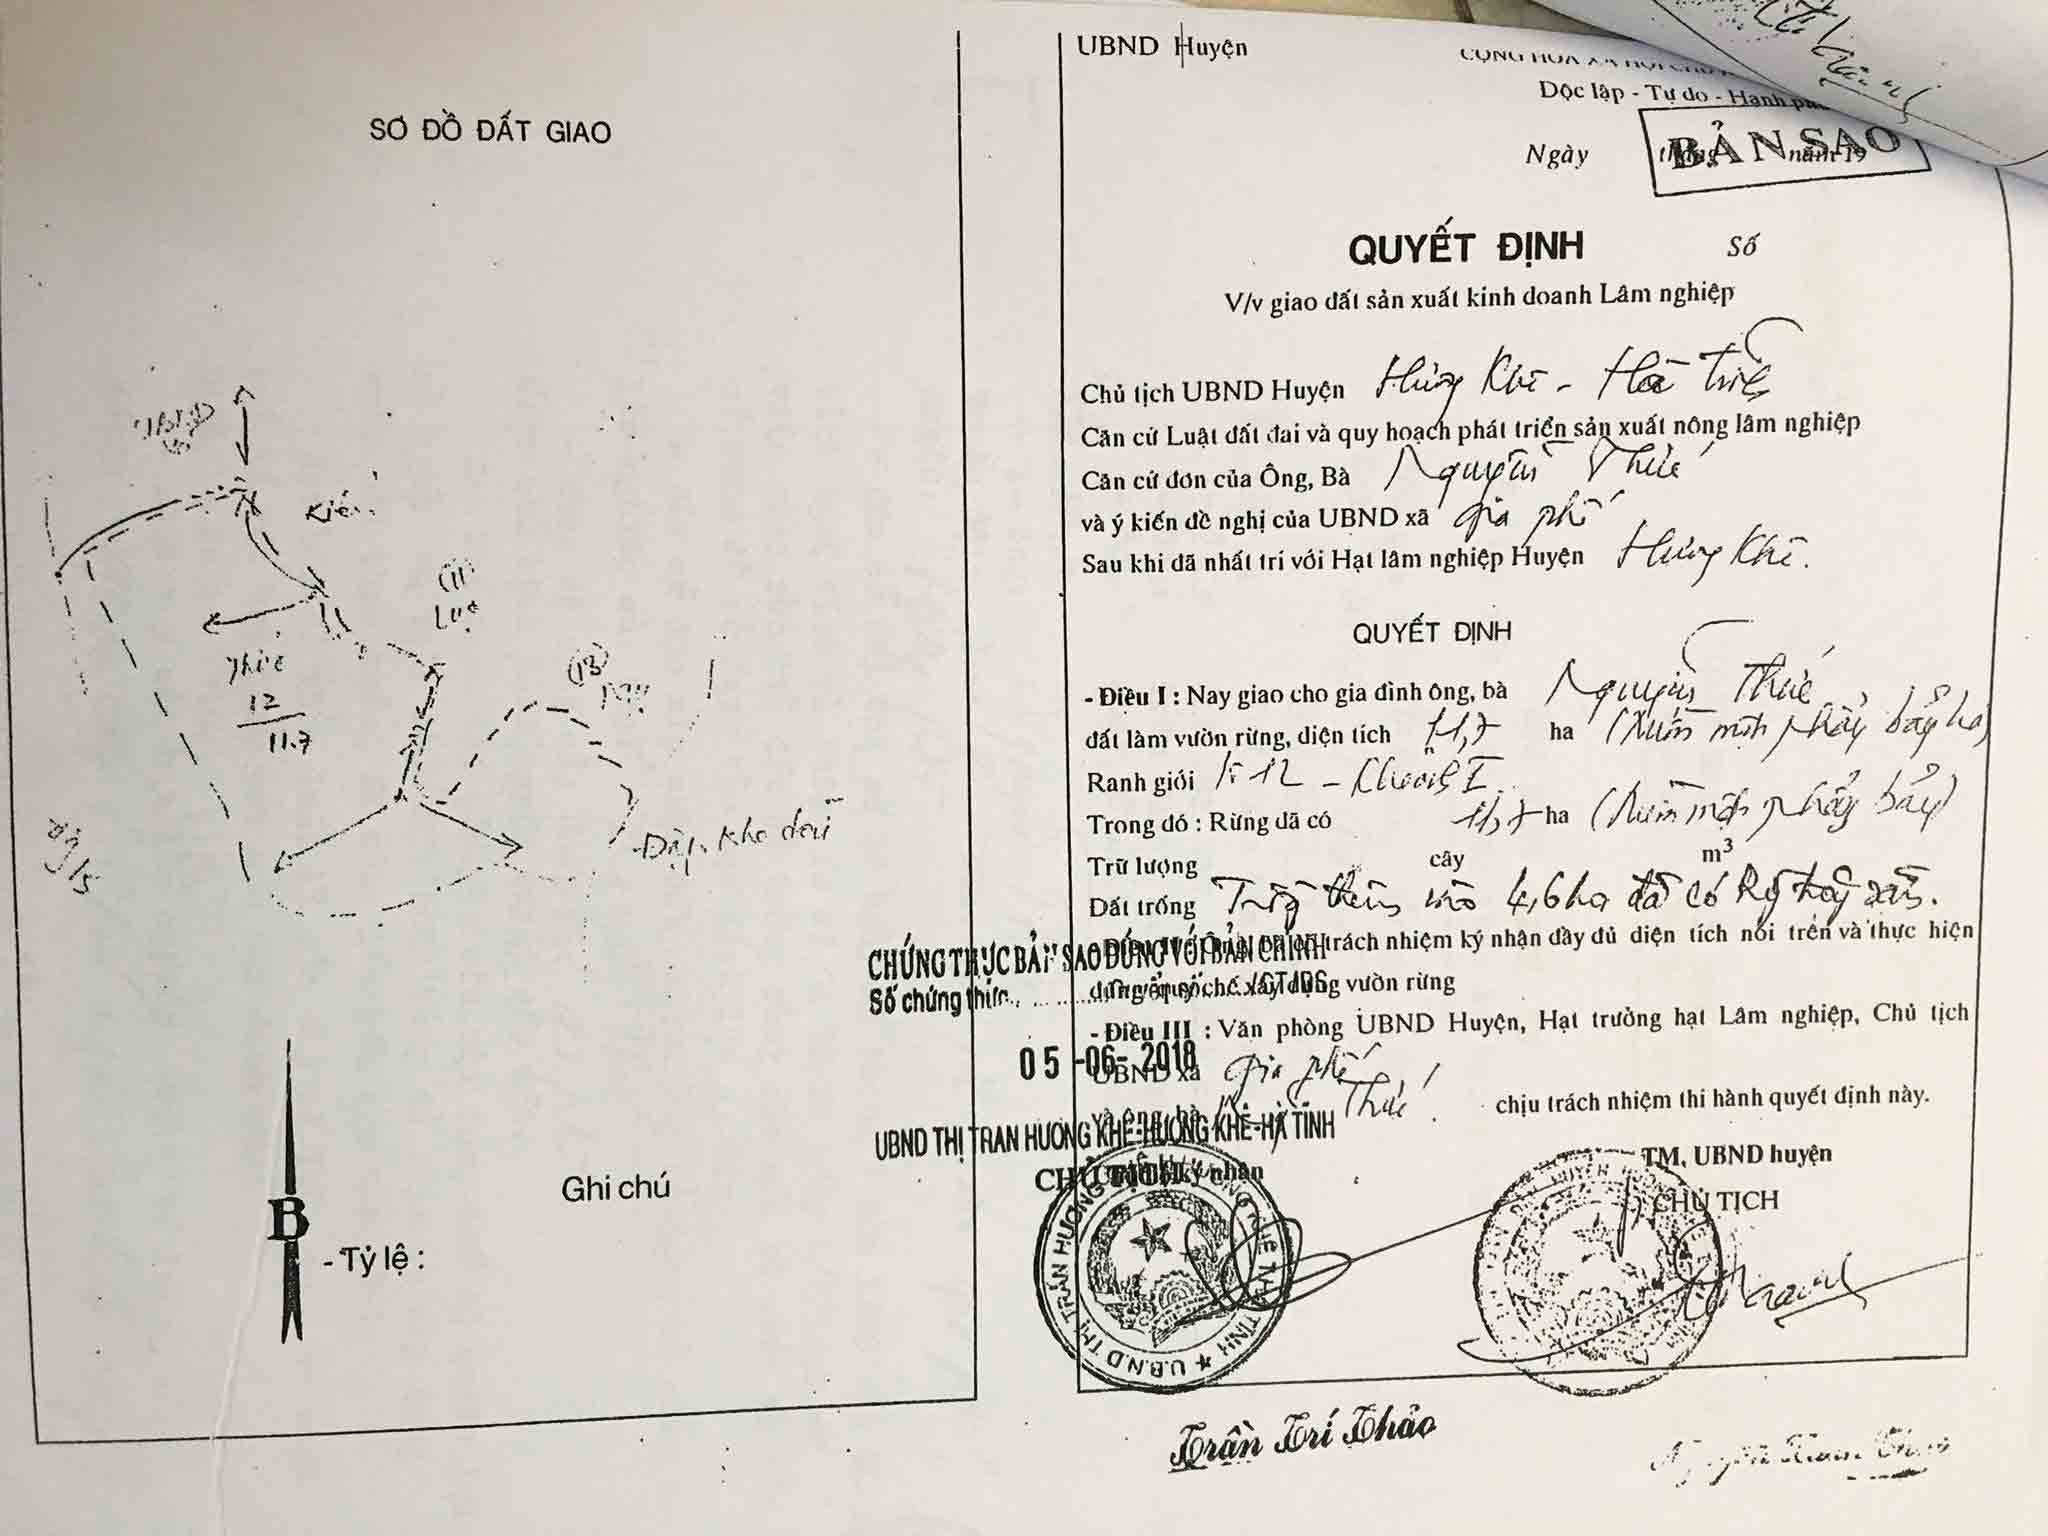 SƠ ĐỒ ĐẤT GIAO
Kiên
(11)
Lực
(13)
Thức
12
11.7
Đập Khe
B
Ghi chú
- Tỷ lệ :
UBND Huyện
Độc lập - Tự do - Hạnh
Ngày tháng năm 19
BẢN SAO
QUYẾT ĐỊNH Số
V/v giao đất sản xuất kinh doanh Lâm nghiệp
Chủ tịch UBND Huyện Hương Khê - Hà Tĩnh
Căn cứ Luật đất đai và quy hoạch phát triển sản xuất nông lâm nghiệp
Căn cứ đơn của Ông, Bà Nguyễn Thức
và ý kiến đề nghị của UBND xã Gia phố
Sau khi đã nhất trí với Hạt lâm nghiệp Huyện Hương Khê.
QUYẾT ĐỊNH
- Điều I : Nay giao cho gia đình ông, bà Nguyễn Thức
đất làm vườn rừng, diện tích 11,7 ha (Mười một phẩy bảy ha)
Ranh giới 12 - Khoảnh I
Trong đó : Rừng đã có 11,7 ha (Mười một phẩy bảy)
Trữ lượng cây m³
Đất trống Trồng thêm vào 4,6ha đã có
bà có trách nhiệm ký nhận đầy đủ diện tích nói trên và thực hiện
đúng quy chế xây dựng vườn rừng
- Điều III : Văn phòng UBND Huyện, Hạt trưởng hạt Lâm nghiệp, Chủ tịch
UBND xã Gia phố
và ông, bà Thức chịu trách nhiệm thi hành quyết định này.
CHỨNG THỰC BẢN SAO ĐÚNG VỚI BẢN CHÍNH
Số chứng thực
05 -06- 2018
UBND THỊ TRẤN HƯƠNG KHÊ-HƯƠNG KHÊ-HÀ TĨNH
CHỦ TỊCH
ký nhận
TM, UBND huyện
CHỦ TỊCH
U.B.N.D THỊ TRẤN HƯƠNG KHÊ
Trần Trí Thảo